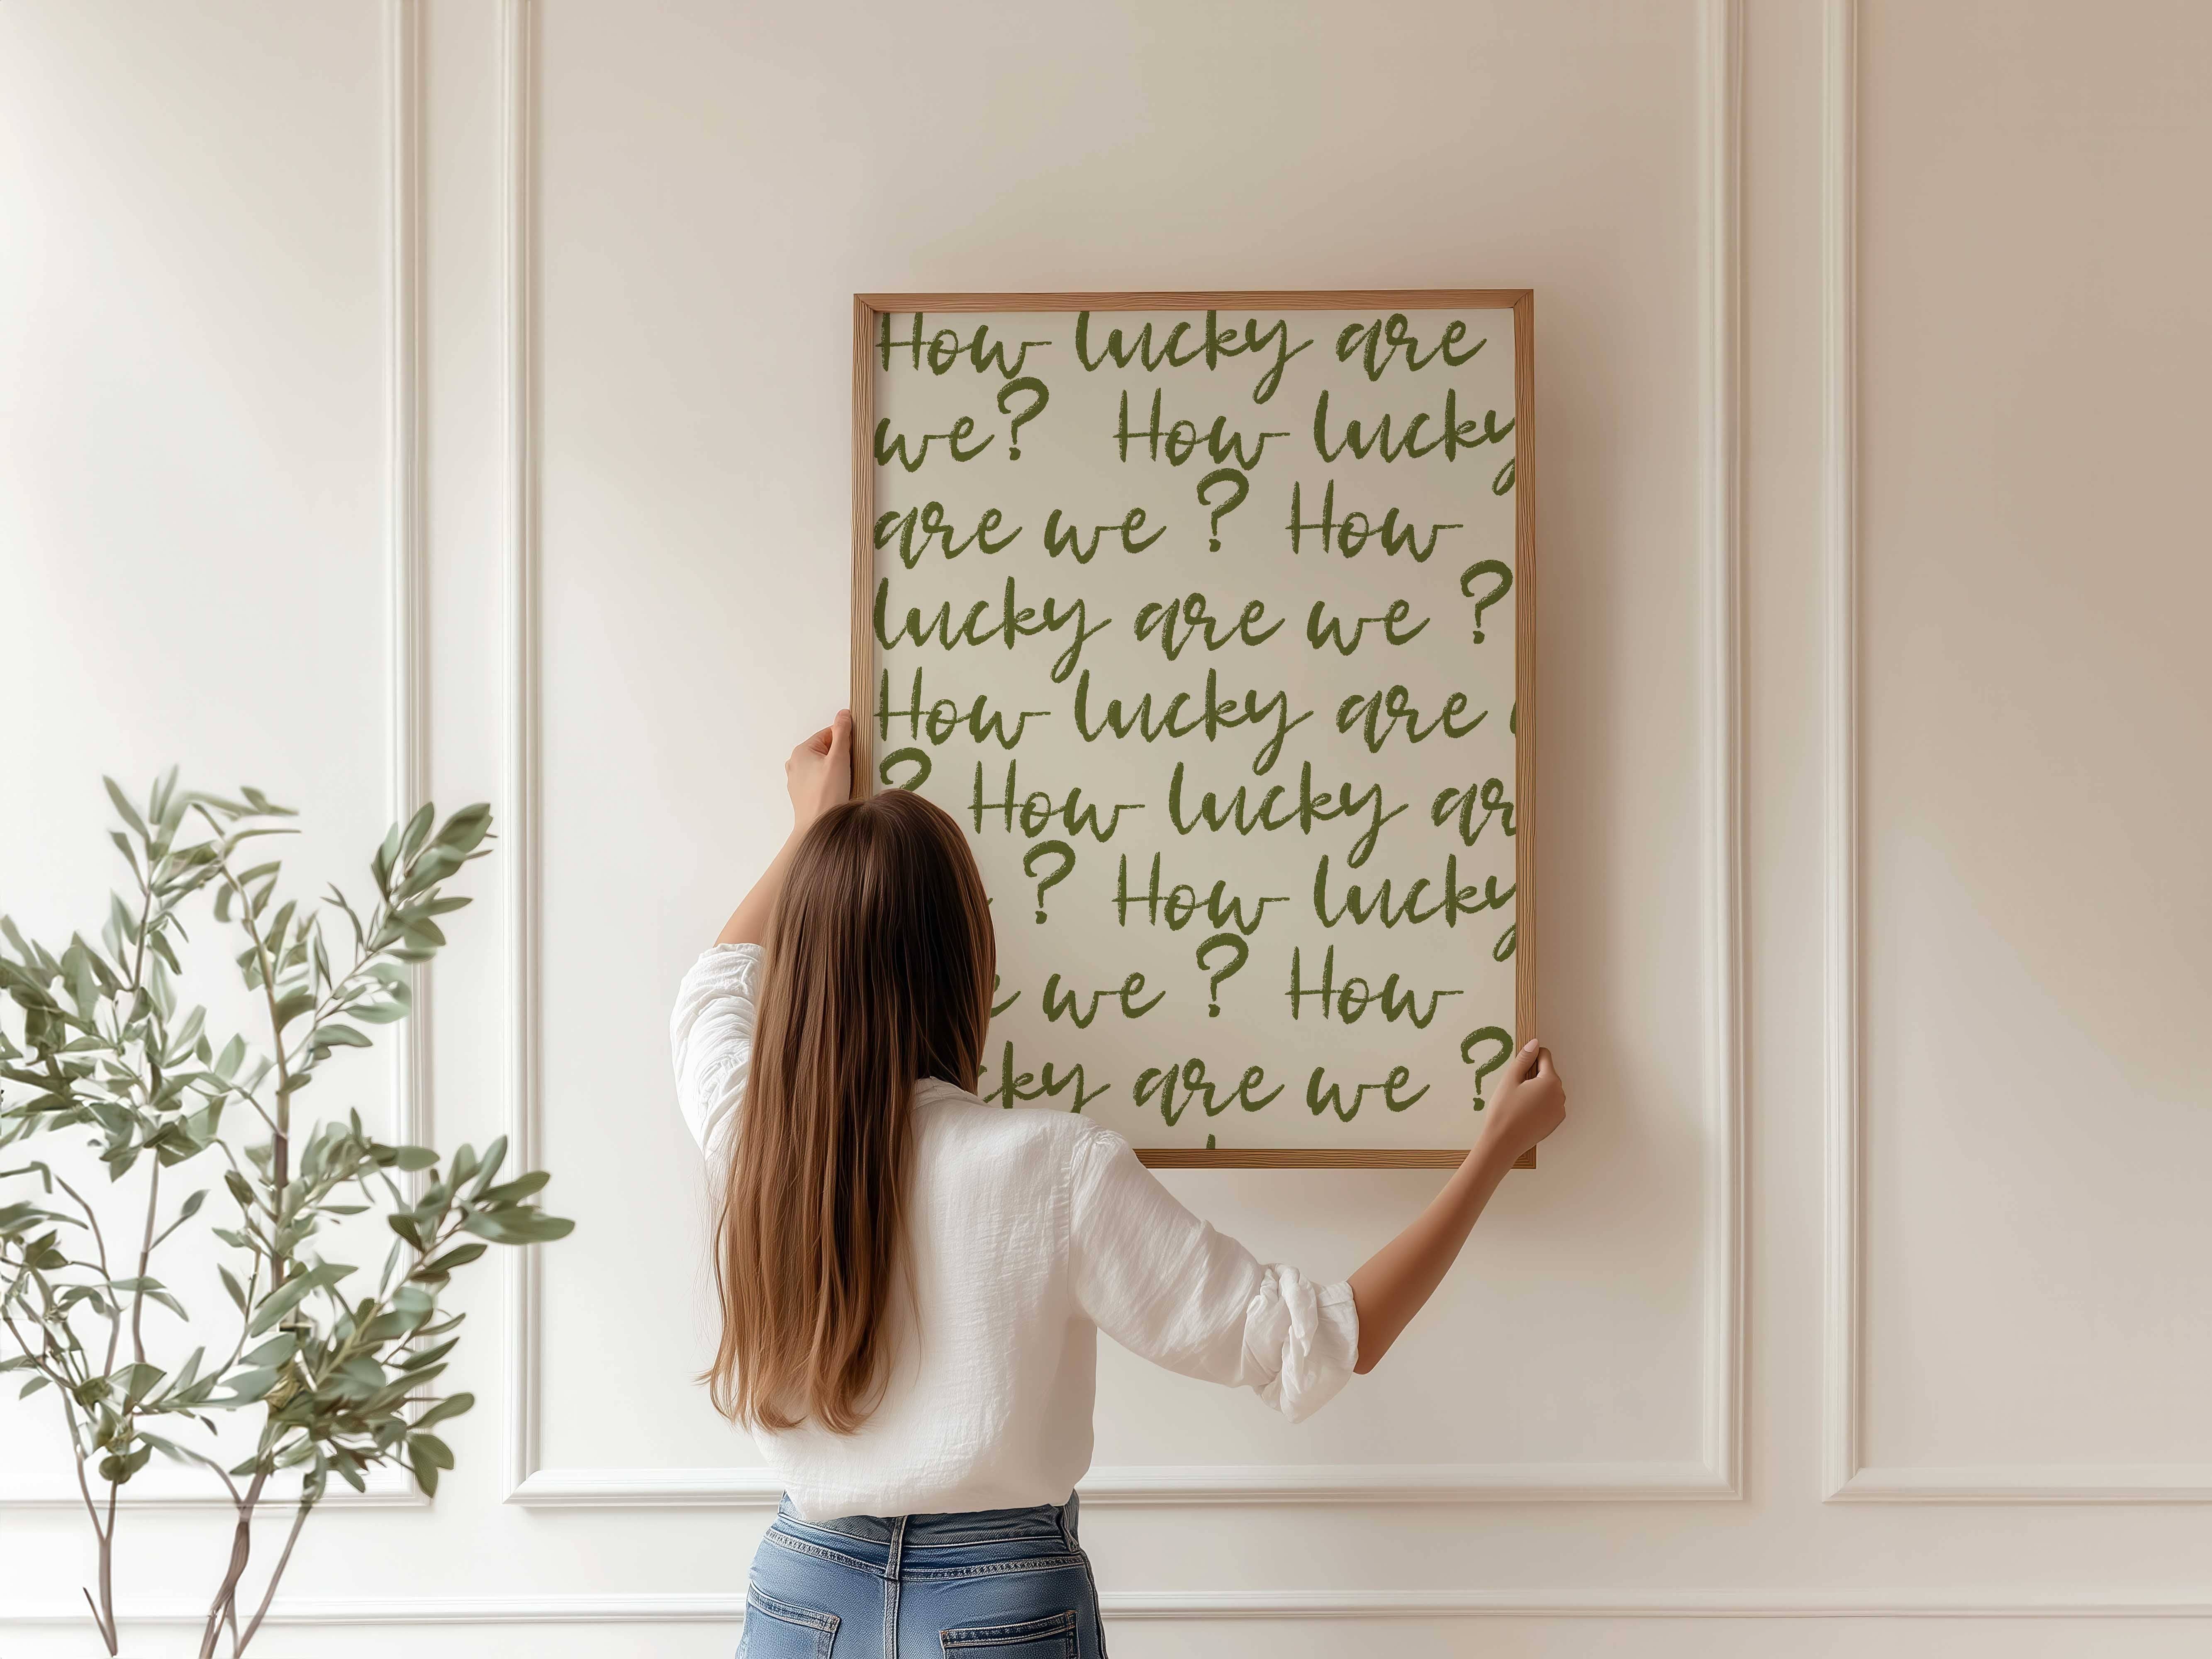 How lucky are
we? How lucky
are we ? How
lucky are we ?
How lucky are
? How lucky ar
? How lucky
we ? How
cky are we ?